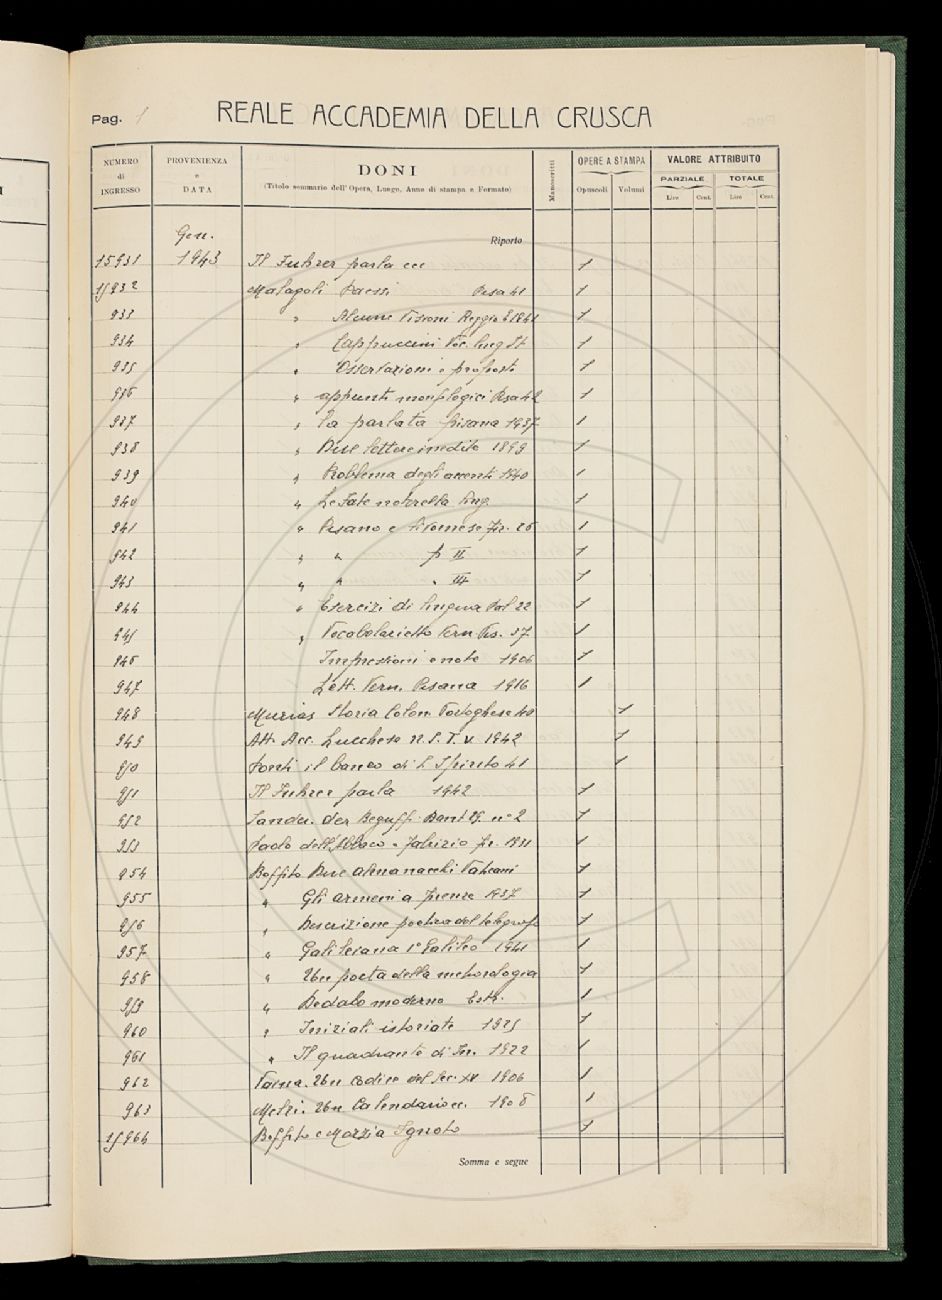 Pag. 1 REALE ACCADEMIA DELLA CRUSCA
NUMERO di INGRESSO
PROVENIENZA e DATA
DONI
(Titolo sommario dell'Opera, Luogo, Anno di stampa e Formato)
Manoscritti
OPERE A STAMPA
Opuscoli Volumi
VALORE ATTRIBUITO
PARZIALE TOTALE
Lire Cent. Lire Cent.
Gen. Riporto
15931 1943 Il Fuhrer parla ecc 1
15932 Malagoli Paessi Pisa 41 1
933 " Alcune Visioni Reggio E 1941 1
934 " Cappuccini Voc. ling It 1
935 " Osservazioni e proposte 1
936 " appunti morfologici Pisa 42 1
937 " La parlata pisana 1937 1
938 " Due lettere inedite 1899 1
939 " Problema degli accenti 1940 1
940 " Le fate ling. 1
941 " Pisano e Fir. 26 1
942 " " p II 1
943 " " " III 1
944 " Esercizi di lingua 22 1
945 " Vocabolarietto Vern. Pis. 37 1
946 Impressioni e note 1906 1
947 Lett. Vern. Pisana 1916 1
948 Murias Storia Colon. Portoghese 40 1
949 Att. Acc. Lucchese n. S. T. V. 1942 1
950 Ponti il banco di S Spirito 41 1
951 Il Fuhrer parla 1942 1
952 Sander. Der Band 29. n° 2 1
953 Paolo dell'Abbaco e Fabrizio Fir. 1931 1
954 Boffito Due almanacchi Vaticani 1
955 " Gli armeni a Firenze 1937 1
956 " Descrizione poetica del telegrafo 1
957 " Galileiana 1° Galileo 1941 1
958 " Un poeta della meteorologia 1
959 " Dedalo moderno Estr. 1
960 " Iniziali istoriate 1925 1
961 " Il quadrante di Is. 1922 1
962 Un codice del Sec. XV 1906 1
963 Melzi. Un Calendario ecc. 1908 1
15964 Boffito e Mozzia Ignoto 1
Somma e segue